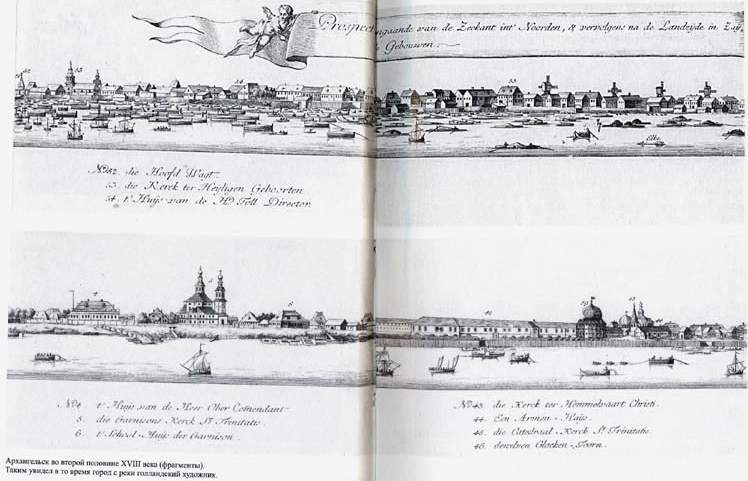 Prospect ingaande van de Zeekant int Noorden, & vervolgens na de Landzijde in Zuy
Gebouwen.
52
53
54
55
Elbe
No. 52. die Hoofd Wagt.
53. die Kerck ter Heijligen Geboorten
54. t' Huijs van de Hr. Toll Director.
4
5
6
No 4. t' Huijs van de Heer Ober Comendant
5. die Garnisons Kerck St. Trinitatis.
6. t' School-Huijs der Garnison.
No. 43. die Kerck ter Hemmelvaart Christi.
44. Een Armen-Huijs.
45. die Catedraal-Kerck St. Trinitatis
46. Glocken-Toorn.
Архангельск во второй половине XVIII века (фрагменты).
Таким увидел в то время город с реки голландский художник.